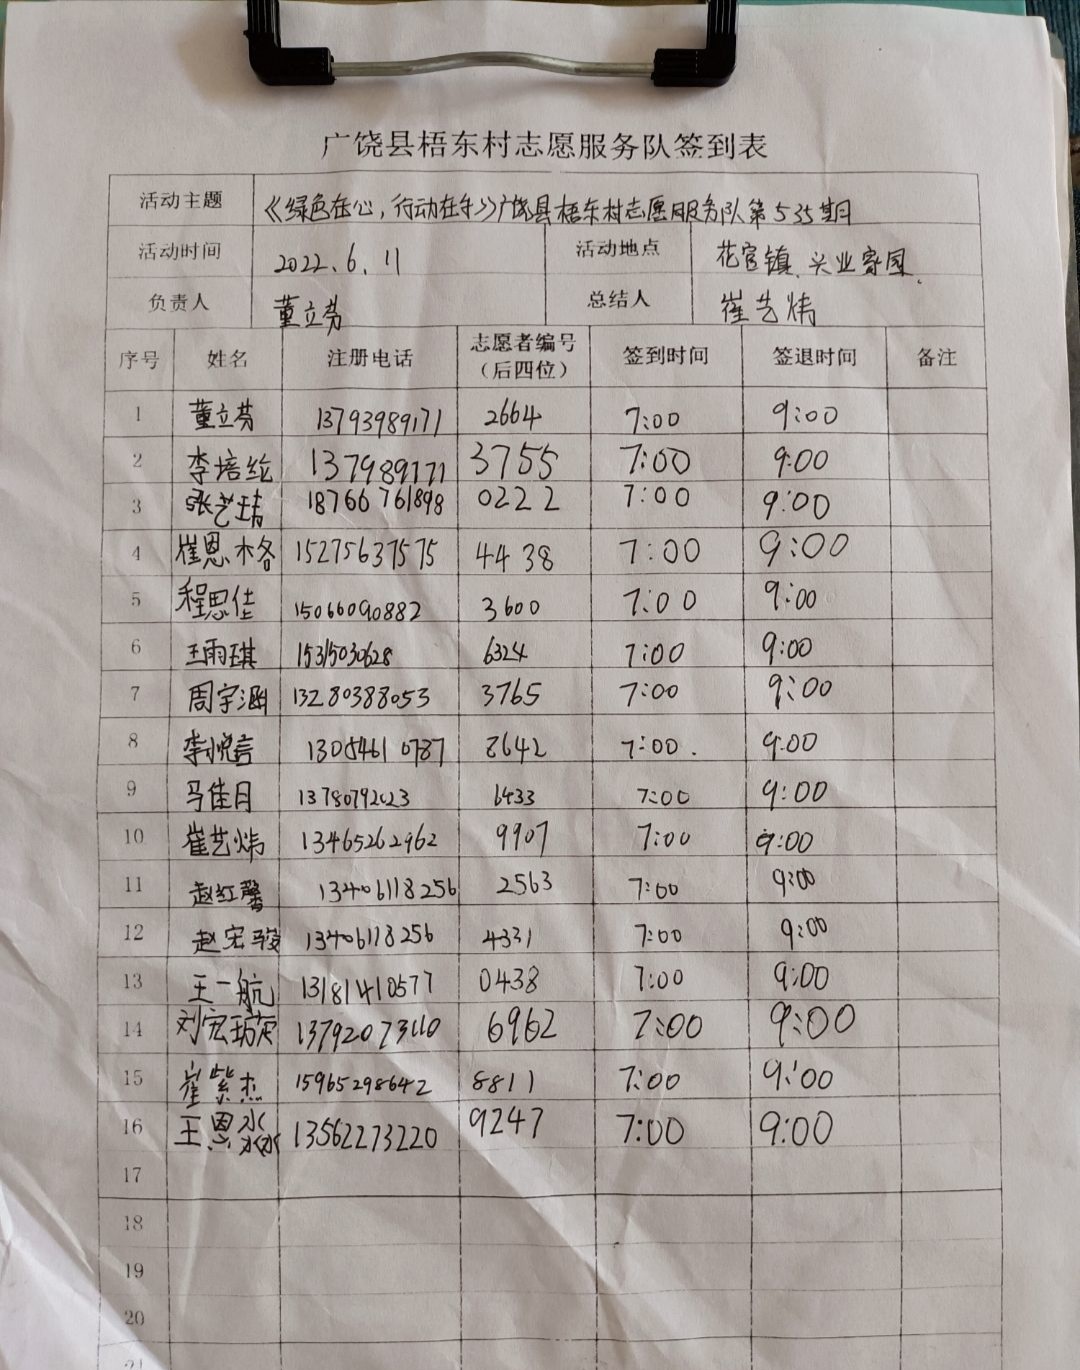 广饶县梧东村志愿服务队签到表
活动主题 《绿色在心，行动在手》广饶县梧东村志愿服务队第535期
活动时间 2022.6.11 活动地点 花官镇、兴业家园
负责人 董立芬 总结人 崔艺炜
序号 姓名 注册电话 志愿者编号（后四位） 签到时间 签退时间 备注
1 董立芬 13793989171 2664 7:00 9:00
2 李培纶 137989171 3755 7:00 9:00
3 张艺玮 18766761898 0222 7:00 9:00
4 崔恩格 15275637575 4438 7:00 9:00
5 程思佳 15066090882 3600 7:00 9:00
6 王雨琪 15315030628 6324 7:00 9:00
7 周宇涵 13280388053 3765 7:00 9:00
8 李悦言 13054610787 8642 7:00. 9:00
9 马佳月 13780792023 6433 7:00 9:00
10 崔艺炜 13465262962 9907 7:00 9:00
11 赵红馨 13406118256 2563 7:00 9:00
12 赵宏骏 13406118256 4331 7:00 9:00
13 王一航 13181410577 0438 7:00 9:00
14 刘宏 13792073110 6962 7:00 9:00
15 崔紫杰 15965298642 8811 7:00 9:00
16 王恩淼 13562273220 9247 7:00 9:00
17
18
19
20
21